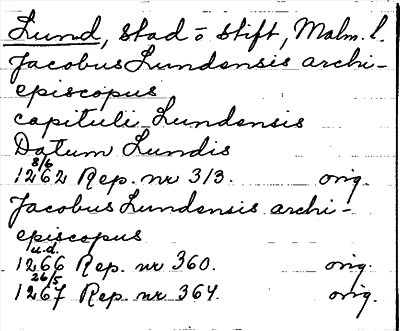 Lund, stad o stift, Malm. l.
Jacobus Lundensis archi-
episcopus
capituli Lundensis
Datum Lundis
8/6
1262 Rep. nr 313. orig.
Jacobus Lundensis archi-
episcopus
u.d.
1266 Rep. nr 360. orig.
26/5
1267 Rep. nr 364. orig.